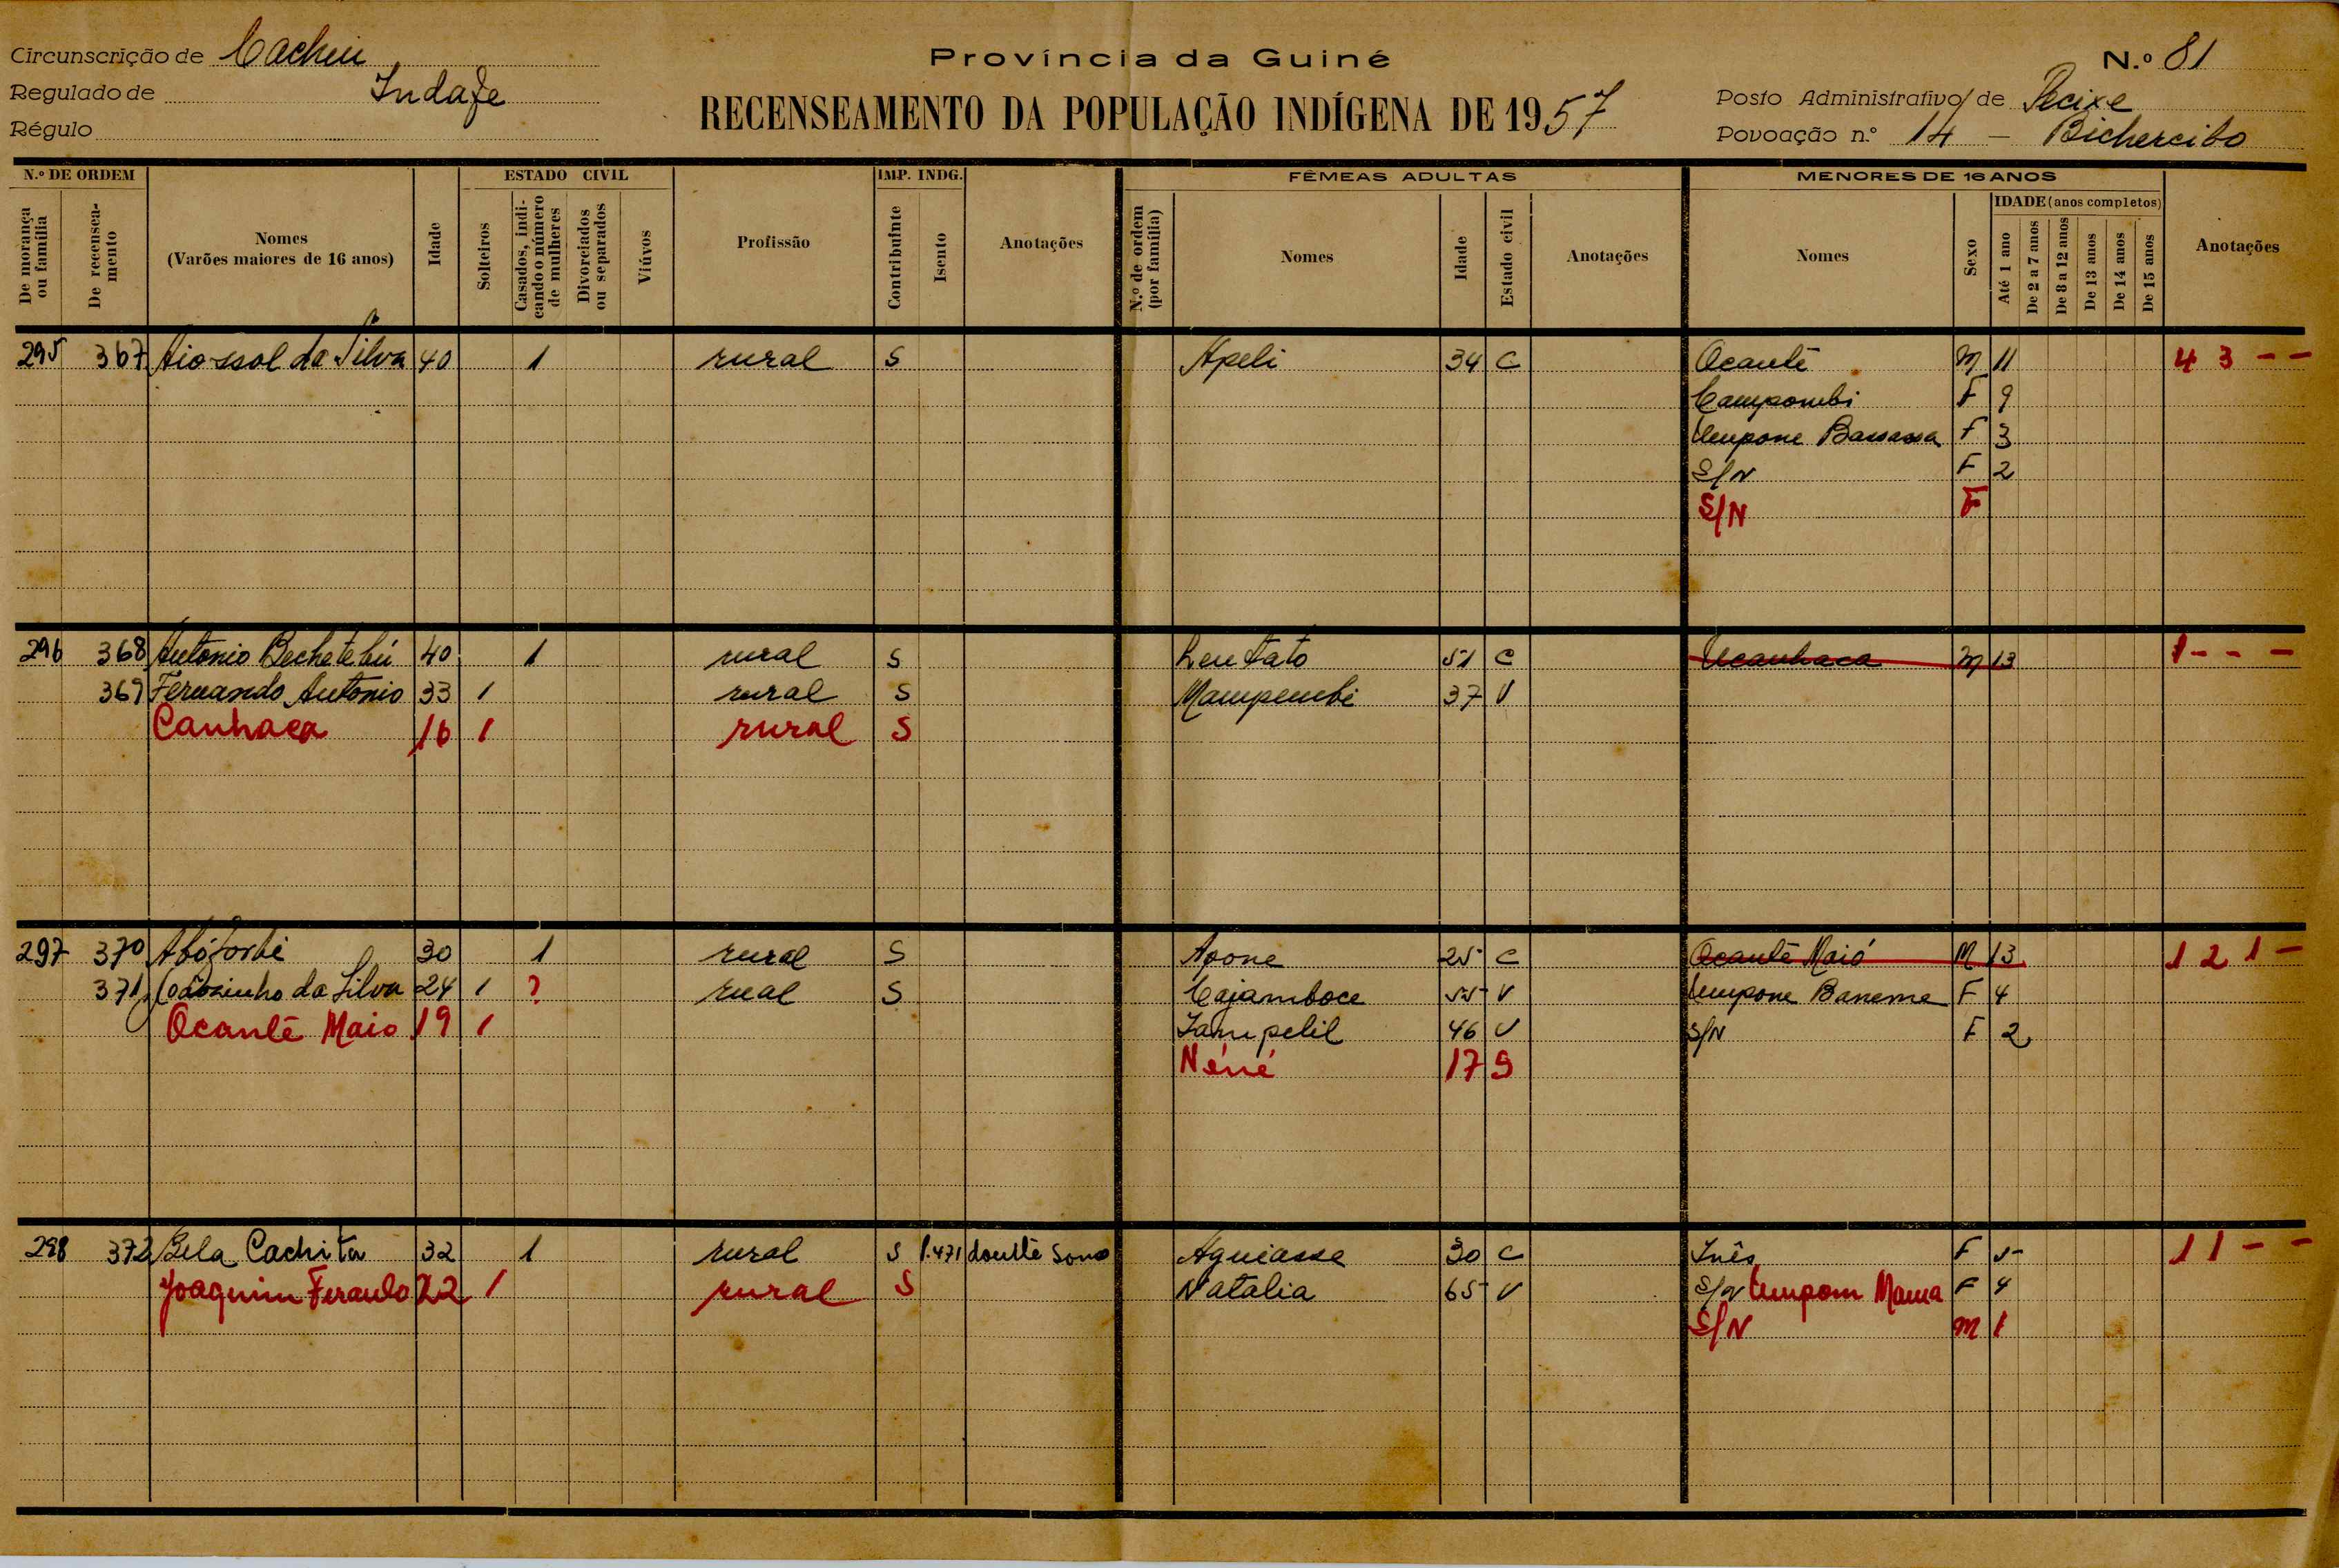 Circunscrição de Cacheu
Província da Guiné
N.º 81
Regulado de Indafe
Régulo
RECENSEAMENTO DA POPULAÇÃO INDÍGENA DE 1957
Posto Administrativo de Pecixe
Povoação n.º 14 - Bichercibo
N.º DE ORDEM
ESTADO CIVIL
IMP. INDG.
FÊMEAS ADULTAS
MENORES DE 16 ANOS
De morança ou família
De recenseamento
Nomes (Varões maiores de 16 anos)
Idade
Solteiros
Casados, indicando o número de mulheres
Divorciados ou separados
Viúvos
Profissão
Contribuinte
Isento
Anotações
N.º de ordem (por família)
Nomes
Idade
Estado civil
Anotações
Nomes
Sexo
IDADE (anos completos)
Até 1 ano
De 2 a 7 anos
De 8 a 12 anos
De 13 anos
De 14 anos
De 15 anos
Anotações
295 367 Aiossol da Silva 40 1 rural S Apeli 34 C Ocantê M 11 4 3 - -
Campombi F 9
Umpone Bassassa F 3
S/N F 2
S/N F
296 368 Antonio Bechetebú 40 1 rural S 51 C Ucanhaca M 13 1 - - -
369 Fernando Antonio 33 1 rural S Mampembi 37 V
Canhaca 16 1 rural S
297 370 30 1 rural S Apone 25 C Ocantê Maió M 13 1 2 1 -
371 Joãozinho da Silva 24 1 ? rural S Cajamboce 55 V Umpone Baneme F 4
Ocantê Maio 19 1 Jampelil 46 V S/N F 2
Néné 17 S
298 372 Bela Cachita 32 1 rural S 1.471 Aguiasse 30 C Inês F 5 1 1 - -
Joaquim 22 1 rural S Natalia 65 V S/N Umpom Mama F 4
S/N M 1